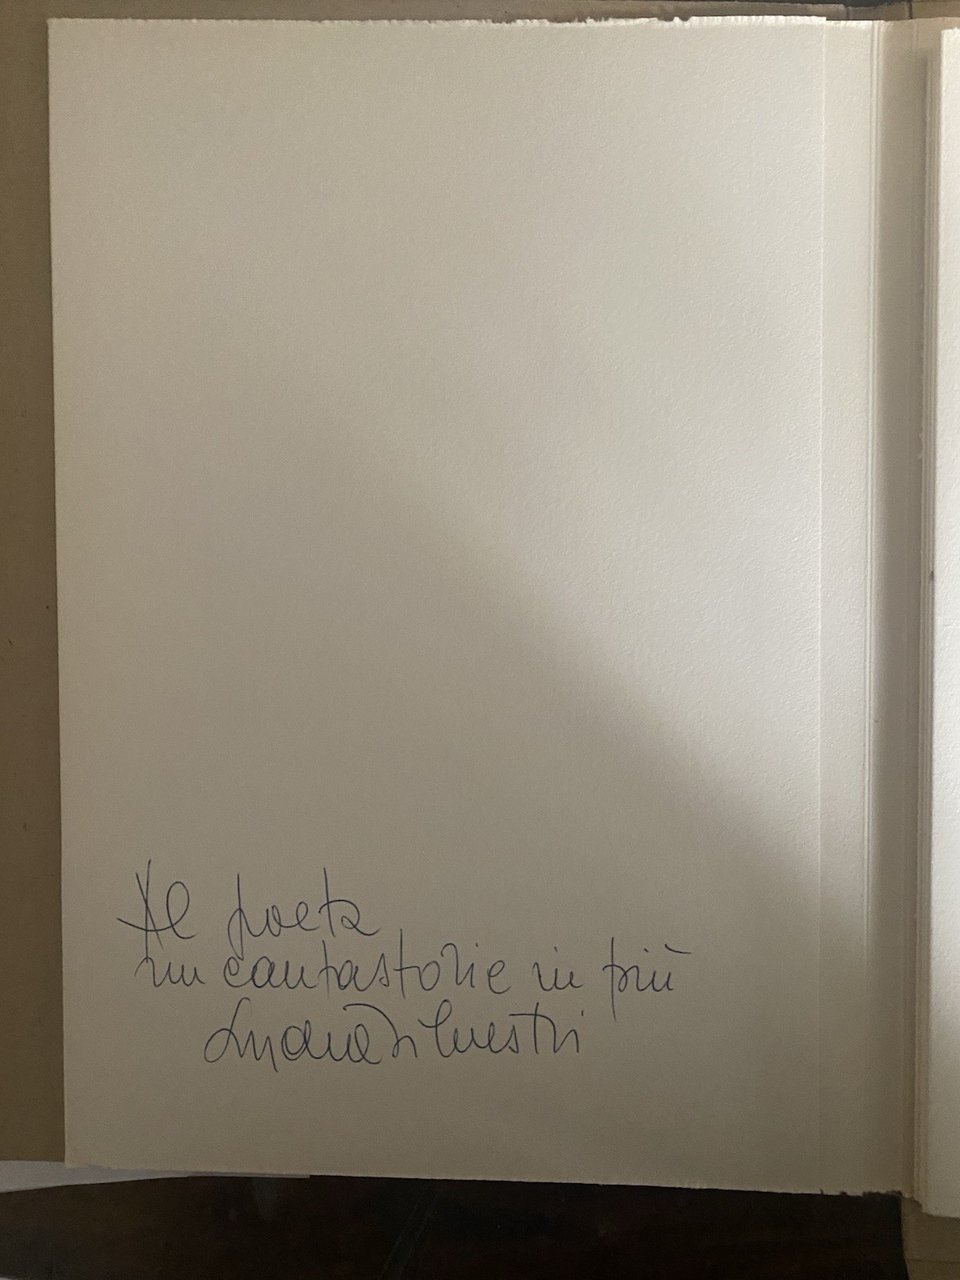 Al poeta
un cantastorie in più
Silvestri